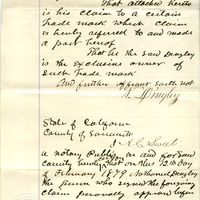 That attached hereto
is his claim to a certain
trade mark which claim
is hereby referred to and made
a part hereof
That he the said Dingley
is the exclusive owner of
such trade mark
And further affiant saith not
N. Dingley
State of California
County of Sonoma
a notary Public in and for said
county hereby on this 12th day
of February 1879 Nathaniel Dingley
the person who signed the foregoing
claim personally appeared before